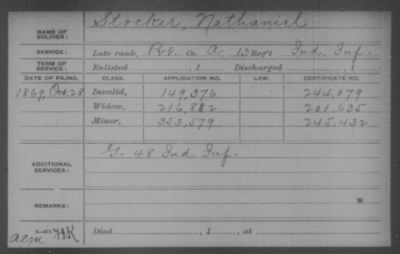 NAME OF SOLDIER: Stocker, Nathaniel
SERVICE: Late rank, Pvt. Co. A, 13 Reg't Ind. Inf.
TERM OF SERVICE: Enlisted , 1 Discharged , 1
DATE OF FILING. CLASS. APPLICATION NO. LAW. CERTIFICATE NO.
1869, Oct. 28 Invalid, 149,376 244,079
Widow, 216,882 201,635
Minor, 353,579 245,432
ADDITIONAL SERVICES: G- 48 Ind. Inf.
REMARKS:
Died , 1 , at